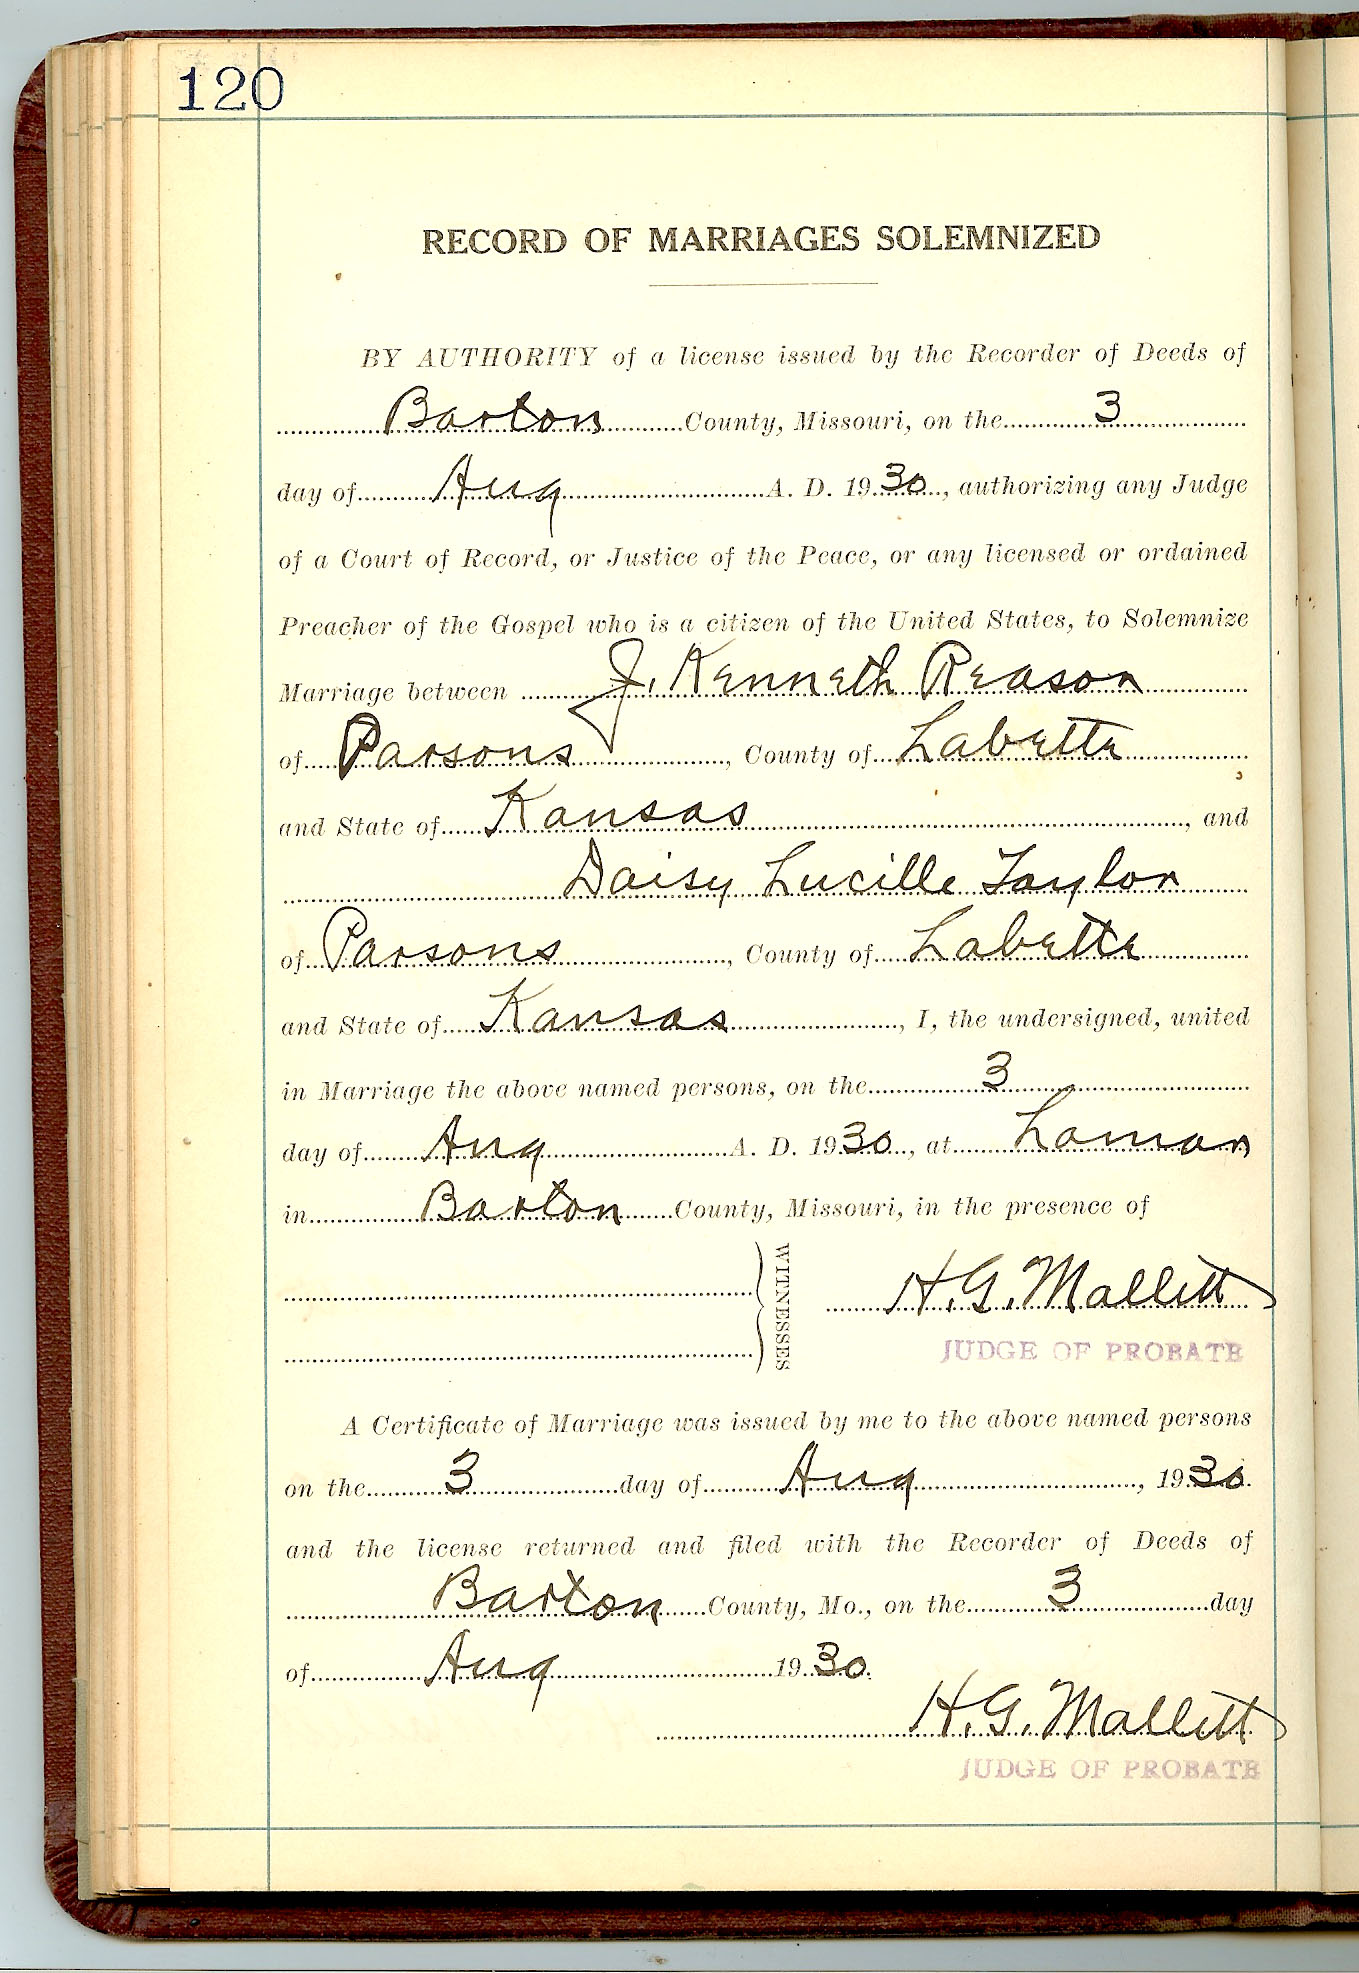 120
RECORD OF MARRIAGES SOLEMNIZED
BY AUTHORITY of a license issued by the Recorder of Deeds of
Barton County, Missouri, on the 3
day of Aug A. D. 1930, authorizing any Judge
of a Court of Record, or Justice of the Peace, or any licensed or ordained
Preacher of the Gospel who is a citizen of the United States, to Solemnize
Marriage between J. Kenneth Reason
of Parsons, County of Labette
and State of Kansas, and
Daisy Lucille Taylor
of Parsons, County of Labette
and State of Kansas, I, the undersigned, united
in Marriage the above named persons, on the 3
day of Aug A. D. 1930, at Lamar
in Barton County, Missouri, in the presence of
WITNESSES
H. G. Mallett
JUDGE OF PROBATE
A Certificate of Marriage was issued by me to the above named persons
on the 3 day of Aug, 1930.
and the license returned and filed with the Recorder of Deeds of
Barton County, Mo., on the 3 day
of Aug 1930.
H. G. Mallett
JUDGE OF PROBATE